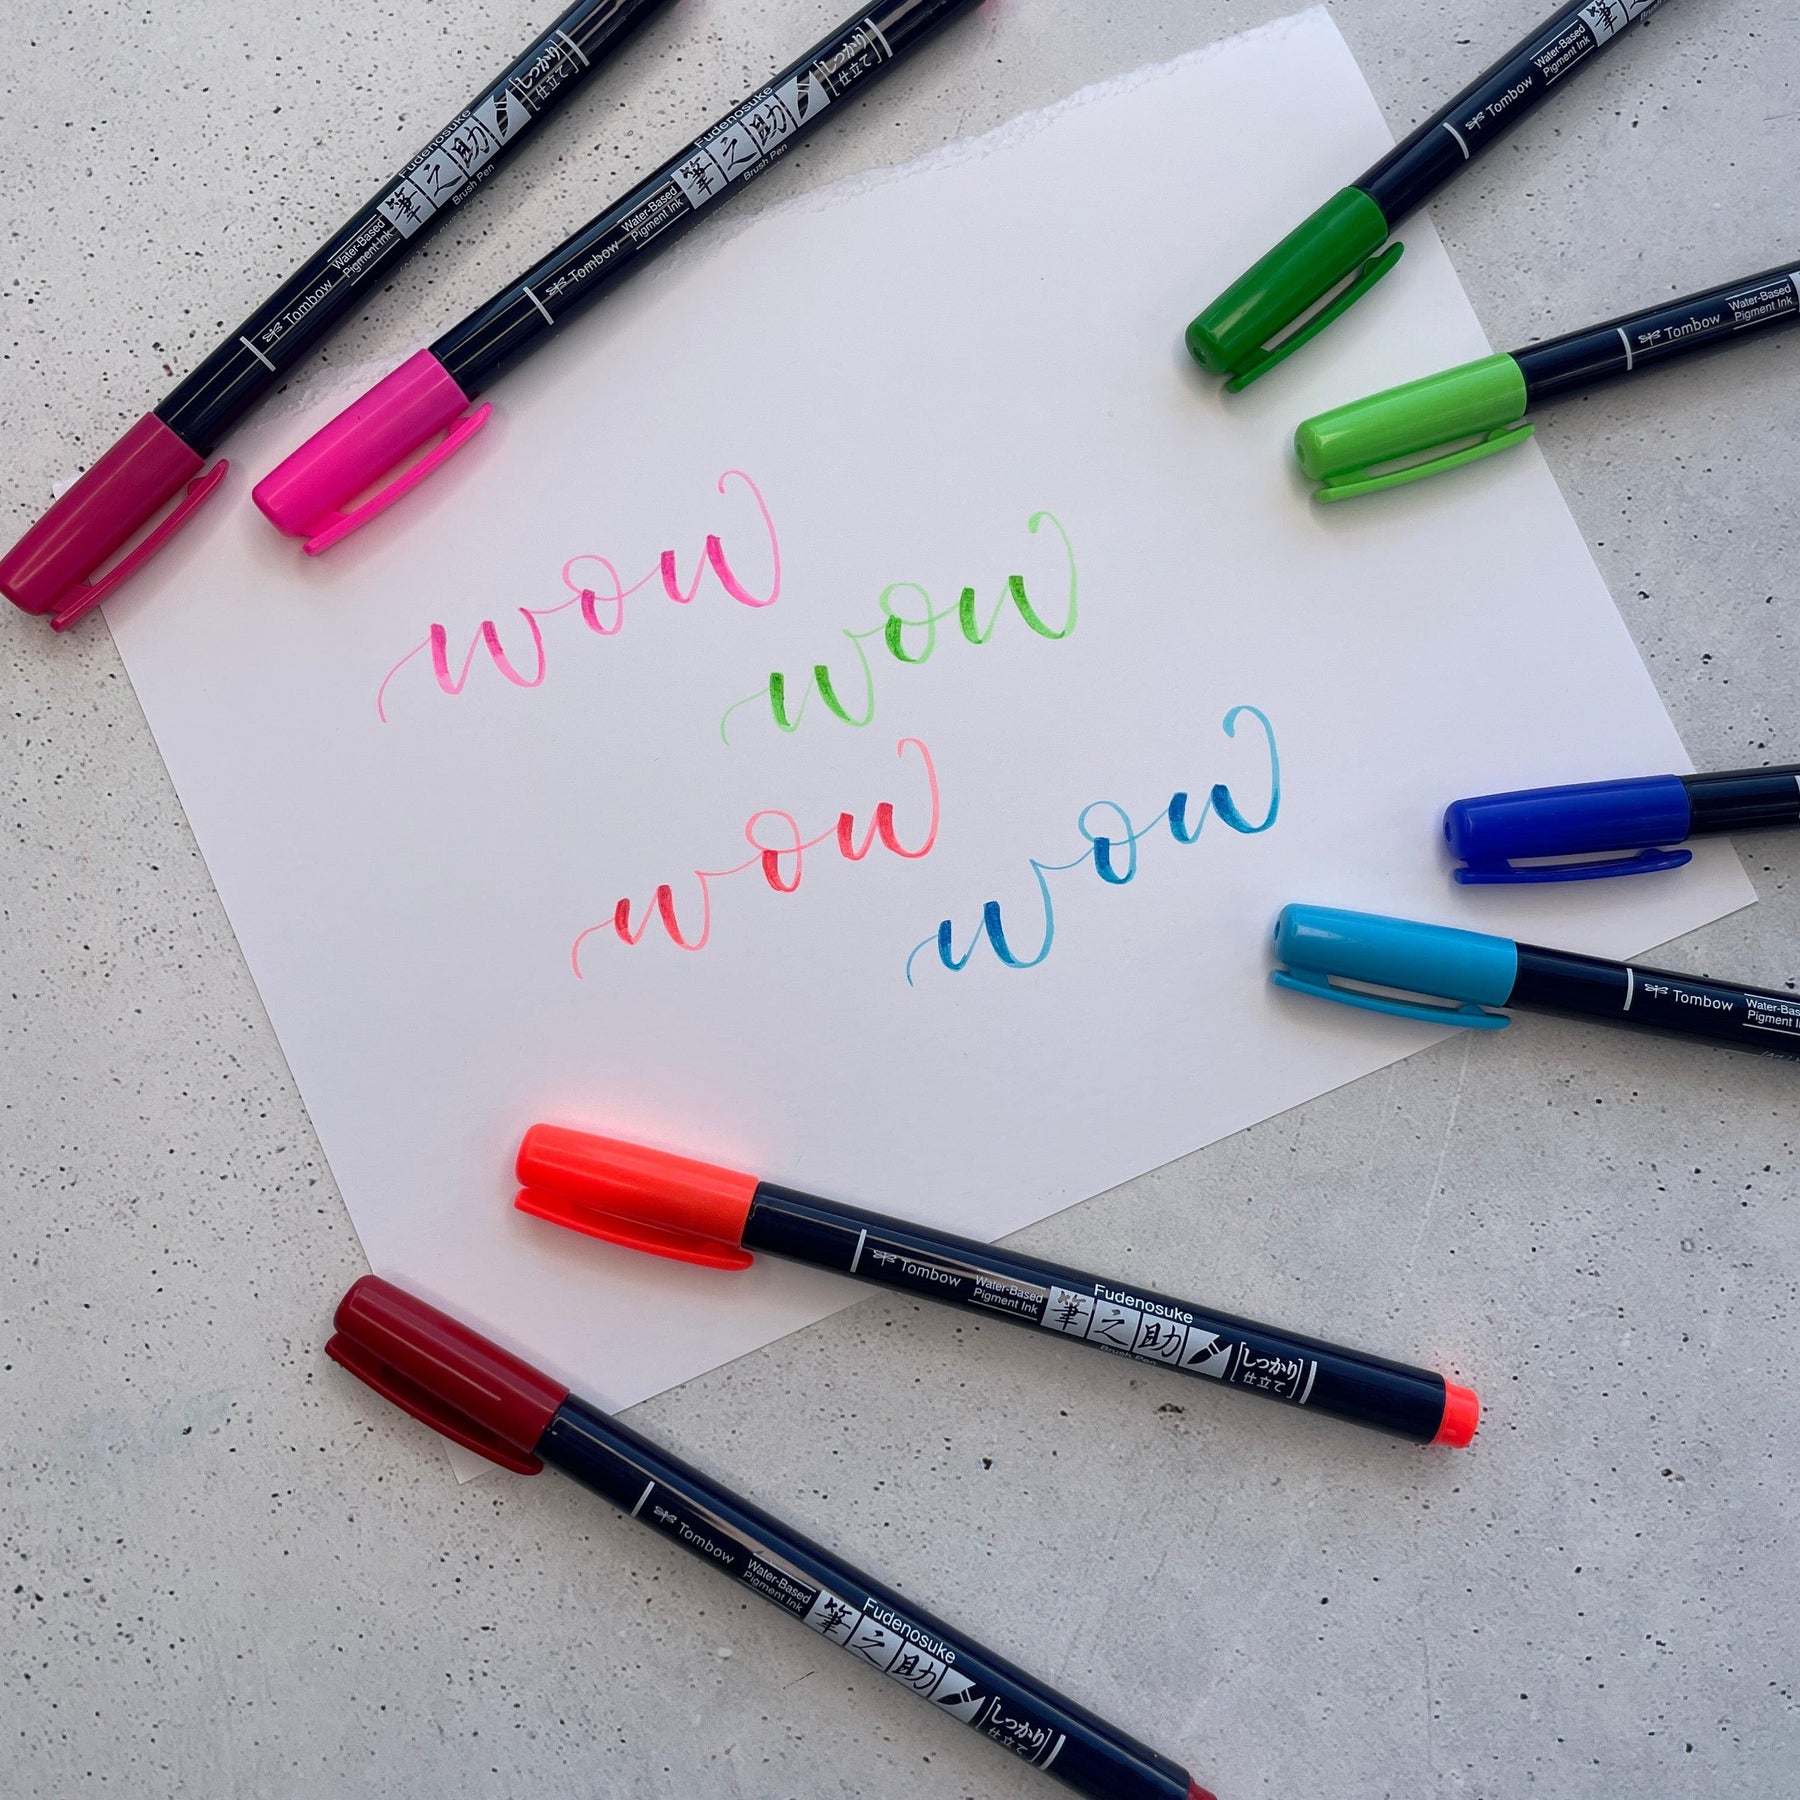 Tombow
Water-Based
Pigment Ink
Fudenosuke
筆之助
Brush Pen
しっかり
仕立て
Tombow
Water-Based
Pigment Ink
Fudenosuke
筆之助
Brush Pen
しっかり
仕立て
Tombow
Water-Based
Pigment Ink
筆
Tombow
Water-Based
Pigment Ink
wow
wow
wow
wow
Tombow
Pigment
Tombow
Water-Based
Pigment Ink
Fudenosuke
筆之助
Brush Pen
しっかり
仕立て
Tombow
Water-Based
Pigment Ink
Fudenosuke
筆之助
しっかり
仕立て